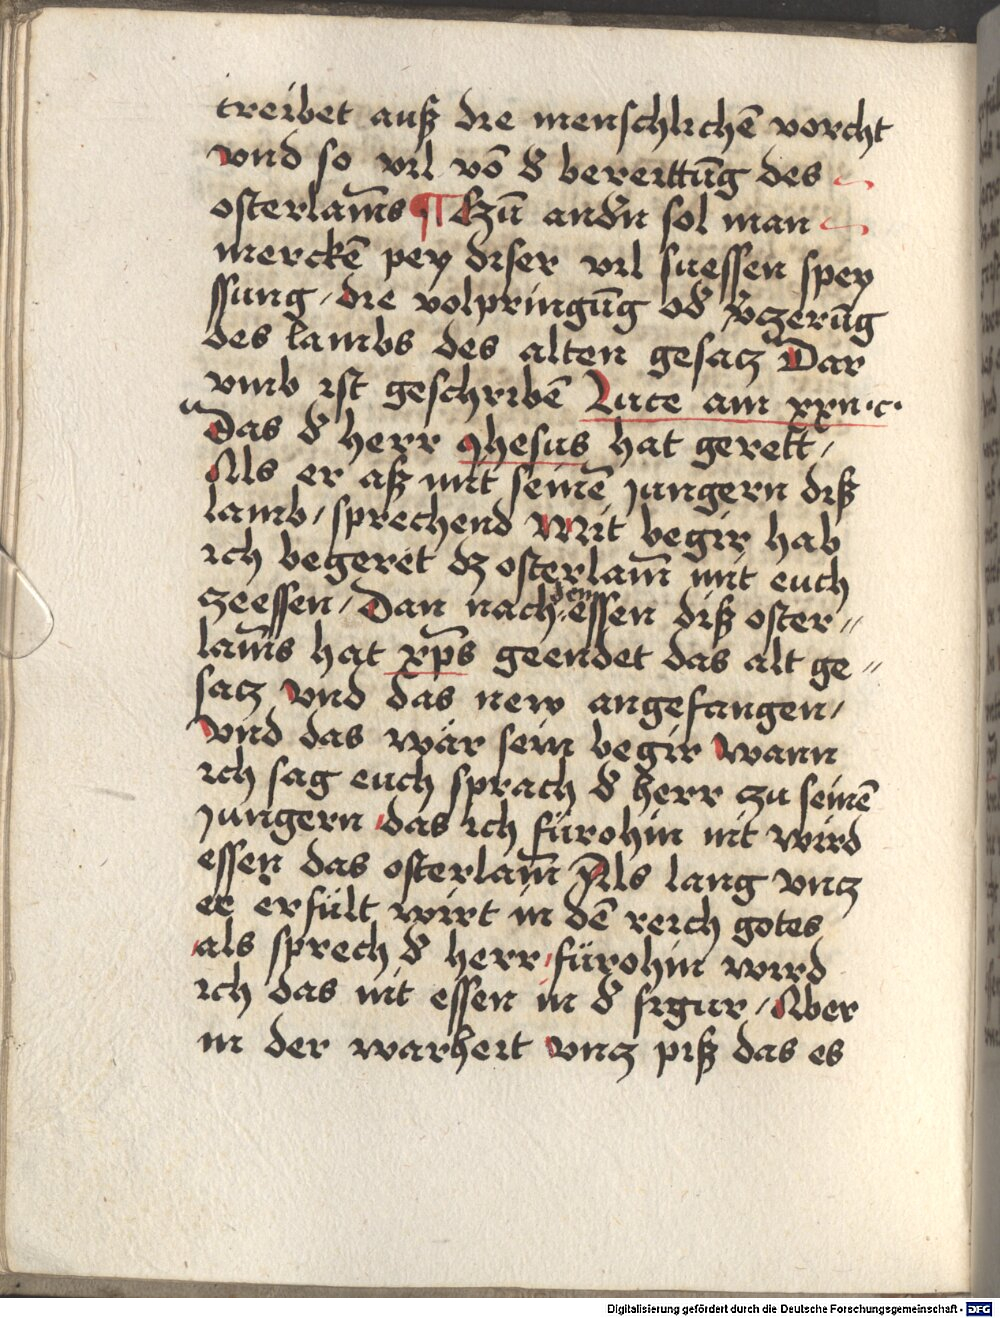 treibet auß die menschlichē vorcht
vnd so vil vō d̄ bereittūg des
osterlam̄s ¶ Czū and̄n sol man
merckē pey diser vil suessen spey
ssung / die volpringūg od̄ v̄czerūg
des lambs des alten gesacz Dar
vmb ist geschribē Luce am xxii·c·
Das d̄ herr Jhesus hat gerett /
Als er aß mit seinē jungern diß
lamb / sprechend Mit begir hab
ich begeret dz osterlam̄ mit euch
zeessen / Dan nach dem essen diß oster //
lam̄s hat xp̄s geendet das alt ge //
sacz Vnd das new angefangen /
Vnd das wär sein begir Wann
ich sag euch sprach d̄ herr zu seinē
jungern / das ich fürohin nit wird
essen das osterlam̄ Als lang vncz
er erfült wirt in dē reich gotes
als sprech d̄ herr / fürohin wird
ich das nit essen in d̄ figur / Aber
in der warheit vncz piß das es
Digitalisierung gefördert durch die Deutsche Forschungsgemeinschaft - DFG